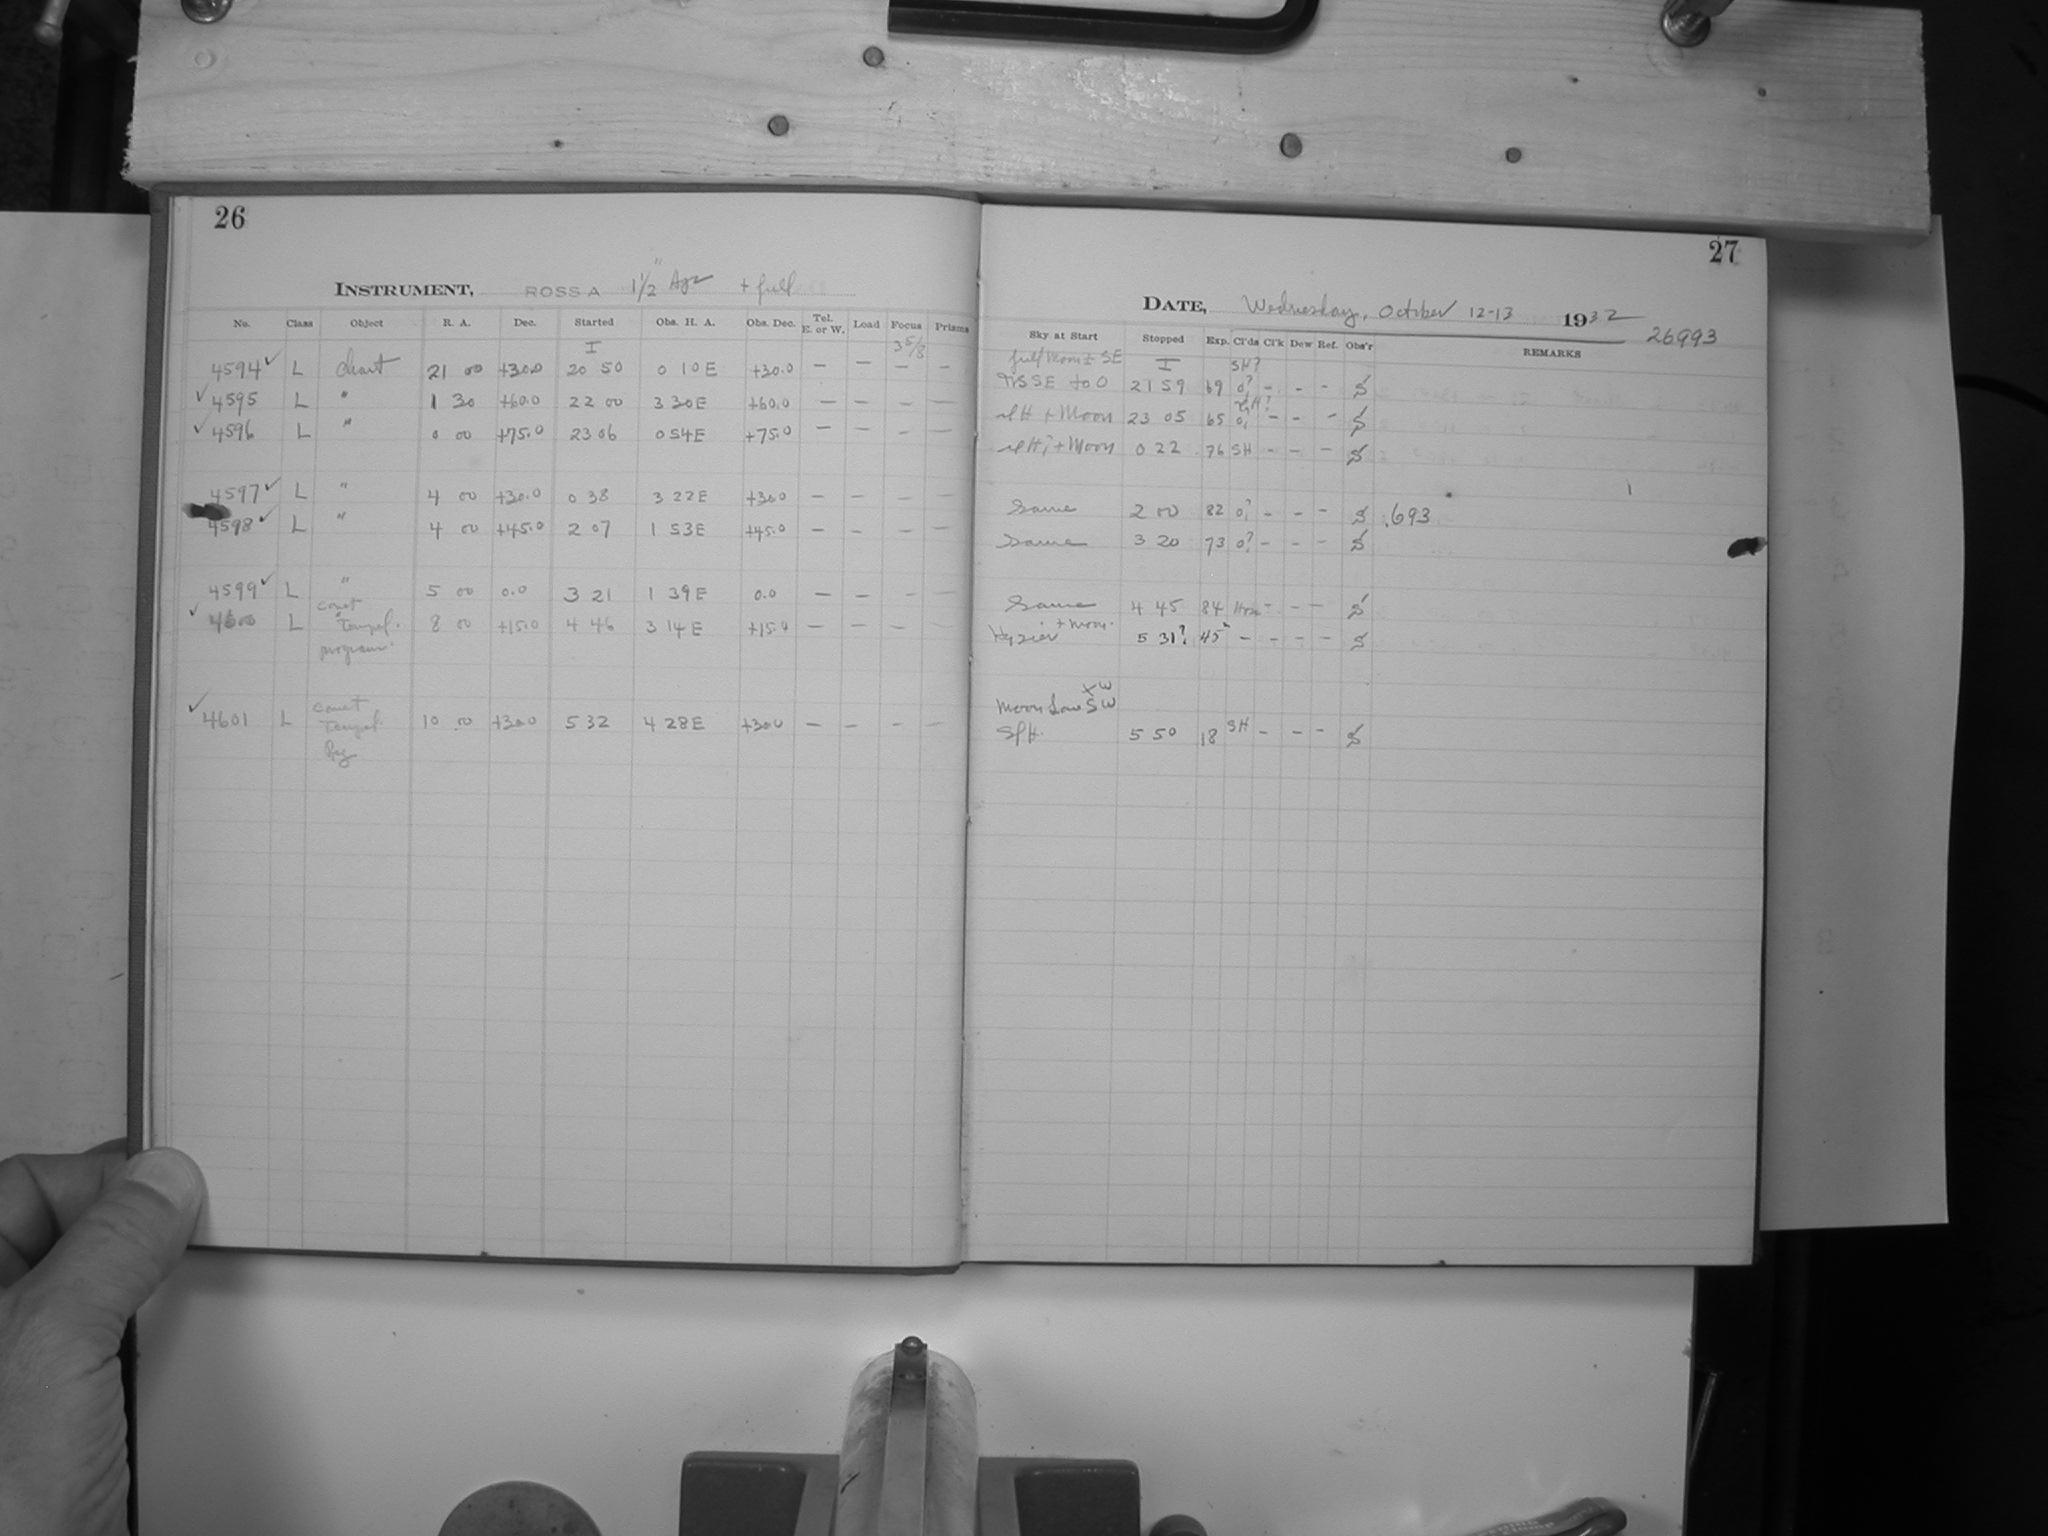 26
INSTRUMENT, ROSS A 1 1/2" Apr + full
No. Class Object R. A. Dec. Started Obs. H. A. Obs. Dec. Tel. E. or W. Load Focus Prisms
I 3 5/8
4594 ✓ L Chart 21 00 +30.0 20 50 0 10 E +30.0 — — — —
✓ 4595 L " 1 30 +60.0 22 00 3 30 E +60.0 — — — —
✓ 4596 L " 0 00 +75.0 23 06 0 54 E +75.0 — — — —
4597 ✓ L " 4 00 +30.0 0 38 3 22 E +30.0 — — — —
4598 ✓ L " 4 00 +45.0 2 07 1 53 E +45.0 — — — —
4599 ✓ L " 5 00 0.0 3 21 1 39 E 0.0 — — — —
✓ 4600 L Comet Tempel. program. 8 00 +15.0 4 46 3 14 E +15.0 — — — —
✓ 4601 L Comet Tempel. 10 00 +30.0 5 32 4 28 E +30.0 — — — —
27
DATE, Wednesday, October 12-13 1932
26993
Sky at Start Stopped Exp. Cl'ds Cl'k Dew Ref. Obs'r REMARKS
full Moon ± SE I SH?
SE to O 21 59 69 0? - - - S
H + Moon 23 05 65 0? - - - S
H? + Moon 0 22 76 SH - - - S
Same 2 00 82 0? - - - S .693
Same 3 20 73 0? - - - S
Same 4 45 84 - - - S
Hazier + moon. 5 31? 45 - - - - S
Moon Low SW
W
SlH. 5 50 18 SH - - - S